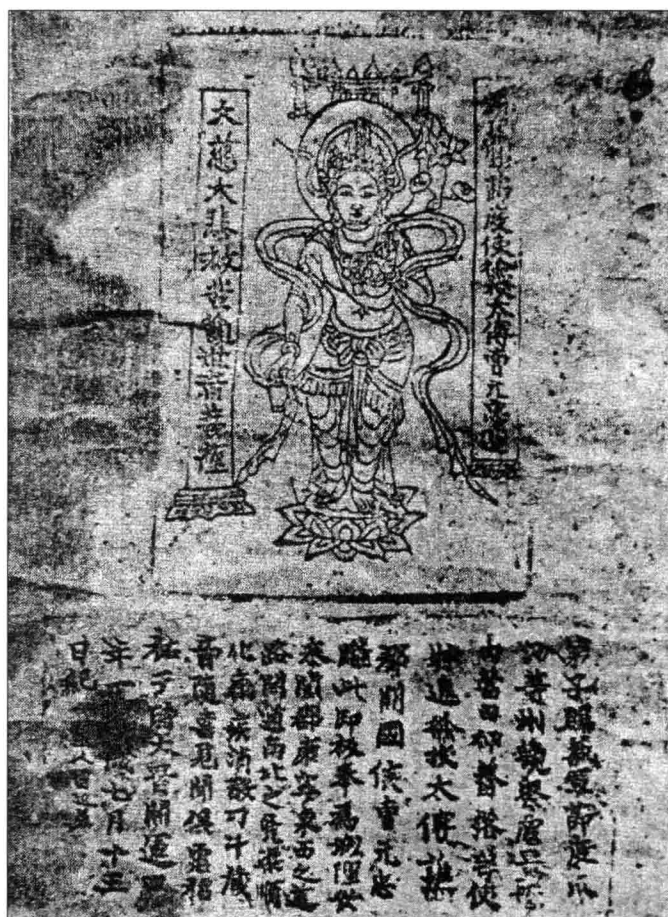 節度使檢校太傅曹元忠造
大慈大悲救苦觀世音菩薩
弟子歸義軍節度瓜
沙等州觀察處置
內營田押蕃落等使
特進檢校太傅譙
郡開國侯曹元忠
雕此印板奉為城隍安
泰闔郡康寧東西之道
路開通南北之凶渠順
化癘疾消散刁斗藏
音隨喜見聞俱霑福
祐于時大晉開運四
年丁 歲七月十五
日紀 匠人